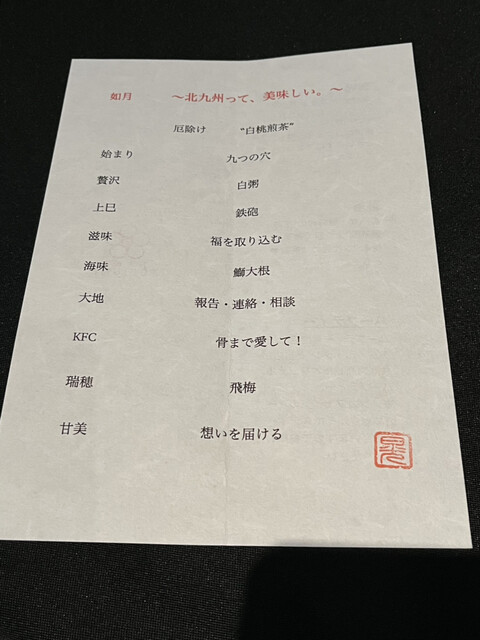 如月 ～北九州って、美味しい。～
厄除け “白桃煎茶”
始まり 九つの穴
贅沢 白粥
上巳 鉄砲
滋味 福を取り込む
海味 鰤大根
大地 報告・連絡・相談
KFC 骨まで愛して！
瑞穂 飛梅
甘美 想いを届ける